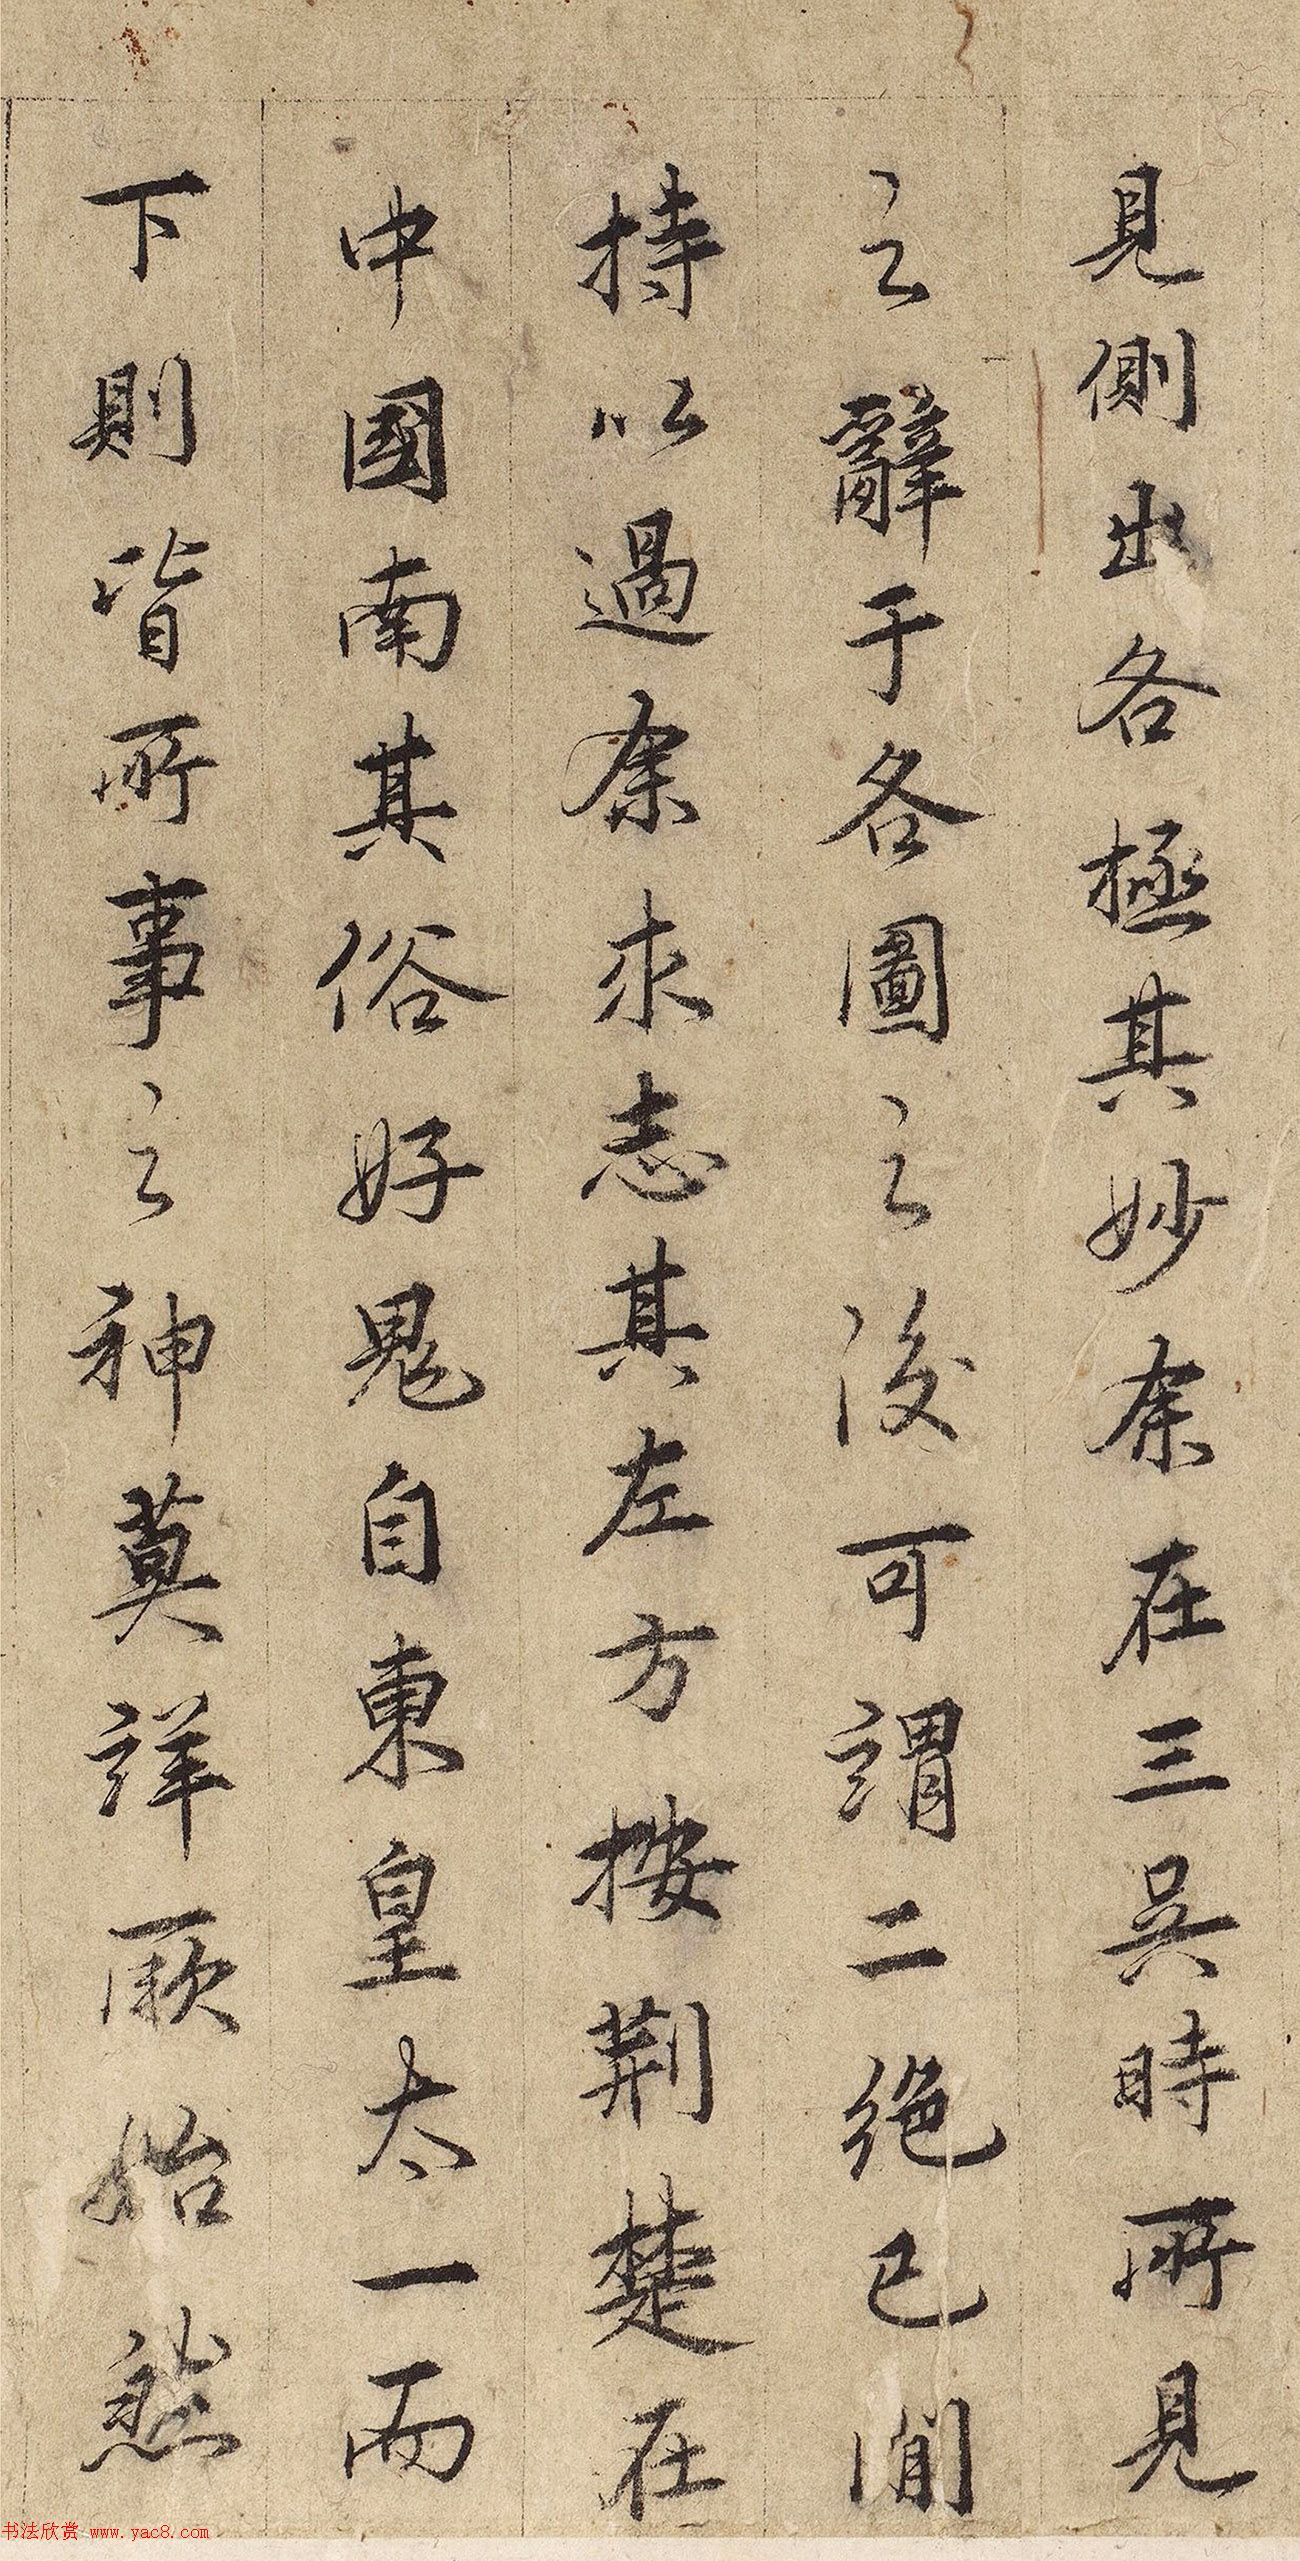 見側出各極其妙余在三吳時所見
之辭于各圖之後可謂二絶已閒
持以過余求志其左方按荆楚在
中國南其俗好鬼自東皇太一而
下則皆所事之神莫詳厥始然
书法欣赏 www.yac8.com